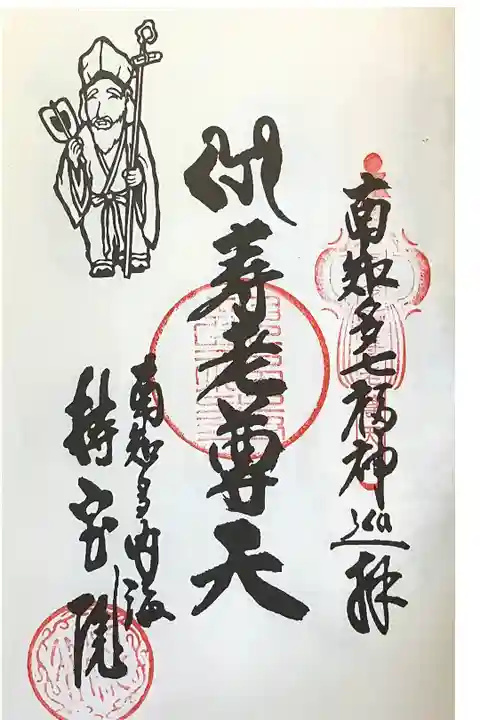 南知多七福神巡拜
寿老尊天
南知多内海
持宝院